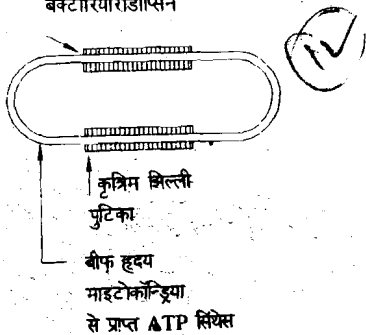 बैक्टीरियोरोडोप्सिन
कृत्रिम झिल्ली
पुटिका
बीफ हृदय
माइटोकॉन्ड्रिया
से प्राप्त ATP सिंथेस